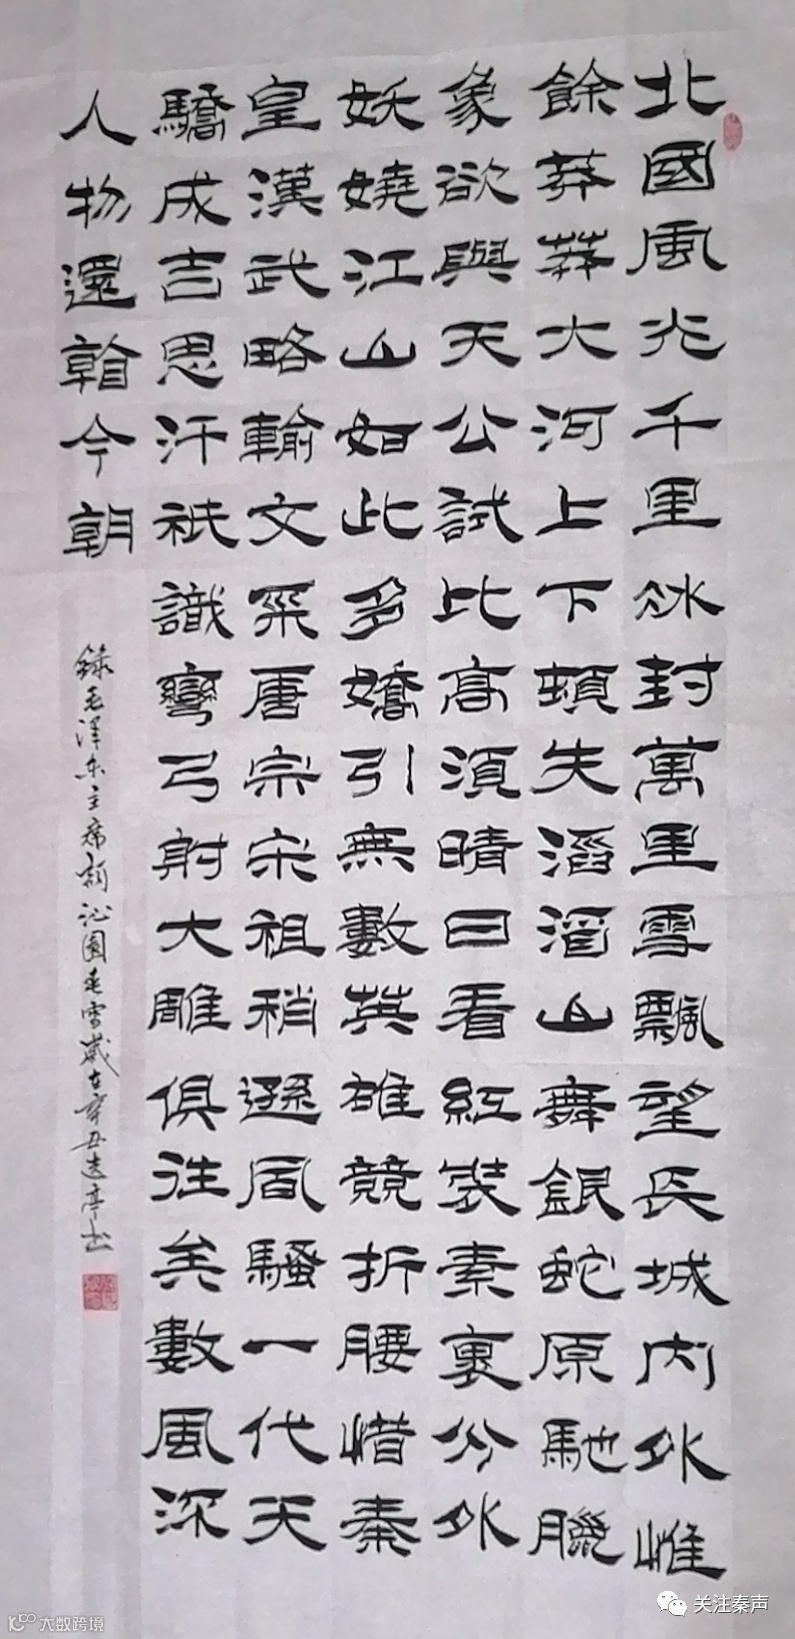 北國風光千里冰封萬里雪飄望長城内外惟
餘莽莽大河上下頓失滔滔山舞銀蛇原馳臘
象欲與天公試比高須晴日看紅裝素裹分外
妖嬈江山如此多嬌引無數英雄競折腰惜秦
皇漢武略輸文采唐宗宋祖稍遜風騷一代天
驕成吉思汗祇識彎弓射大雕俱往矣數風深
人物還看今朝
錄毛澤东主席詞沁園春雪歲在辛丑亭书
大数跨境
关注秦声